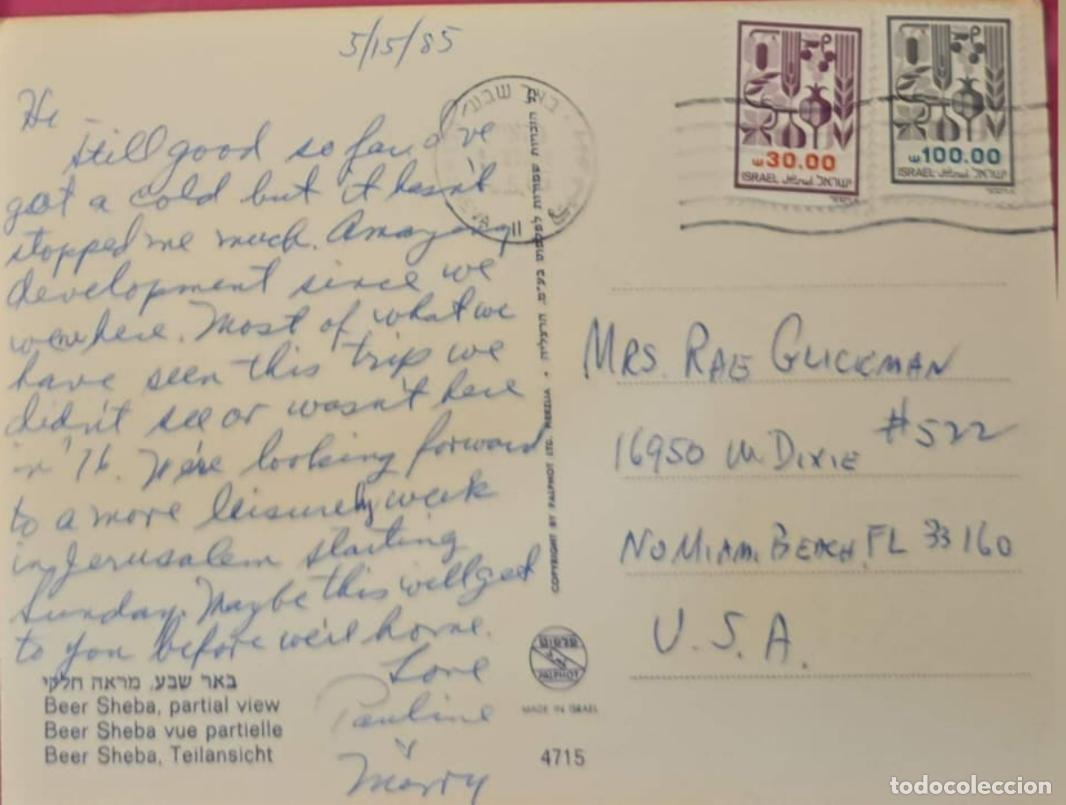 5/15/85
Hi
Still good so far. I've
got a cold but it hasn't
stopped me much. Amazing
development since we
were here. Most of what we
have seen this trip we
didn't see or wasn't here
in '76. We're looking forward
to a more leisurely week
in Jerusalem starting
Sunday. Maybe this will get
to you before we're home.
Love
Pauline
&
Morry
באר שבע, מראה חלקי
Beer Sheba, partial view
Beer Sheba vue partielle
Beer Sheba, Teilansicht
באר שבע
כל הזכויות שמורות לפלפוט בע"מ. הרצליה • COPYRIGHT BY PALPHOT LTD. HERZLIA
פלפוט
PALPHOT
MADE IN ISRAEL
4715
30.00
ISRAEL ישראל
100.00
ISRAEL ישראל
MRS. RAE GLICKMAN
16950 W DIXIE #522
NO MIAMI BEACH, FL 33160
U.S.A.
todocoleccion